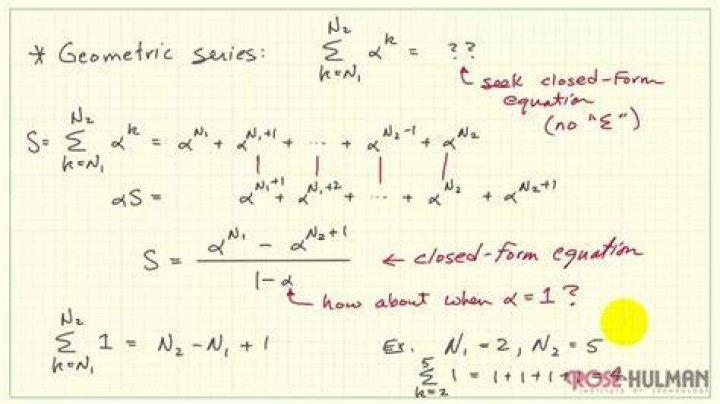 * Geometric series: \sum_{k=N_1}^{N_2} α^k = ??
seek closed-form
equation
(no "Σ")
S = \sum_{k=N_1}^{N_2} α^k = α^{N_1} + α^{N_1+1} + ... + α^{N_2-1} + α^{N_2}
αS = α^{N_1+1} + α^{N_1+2} + ... + α^{N_2} + α^{N_2+1}
S = \frac{α^{N_1} - α^{N_2+1}}{1-α} ← closed-form equation
how about when α=1?
\sum_{k=N_1}^{N_2} 1 = N_2 - N_1 + 1
Ex. N_1 = 2, N_2 = 5
\sum_{k=2}^{5} 1 = 1+1+1+ = 4
ROSE-HULMAN
INSTITUTE OF TECHNOLOGY